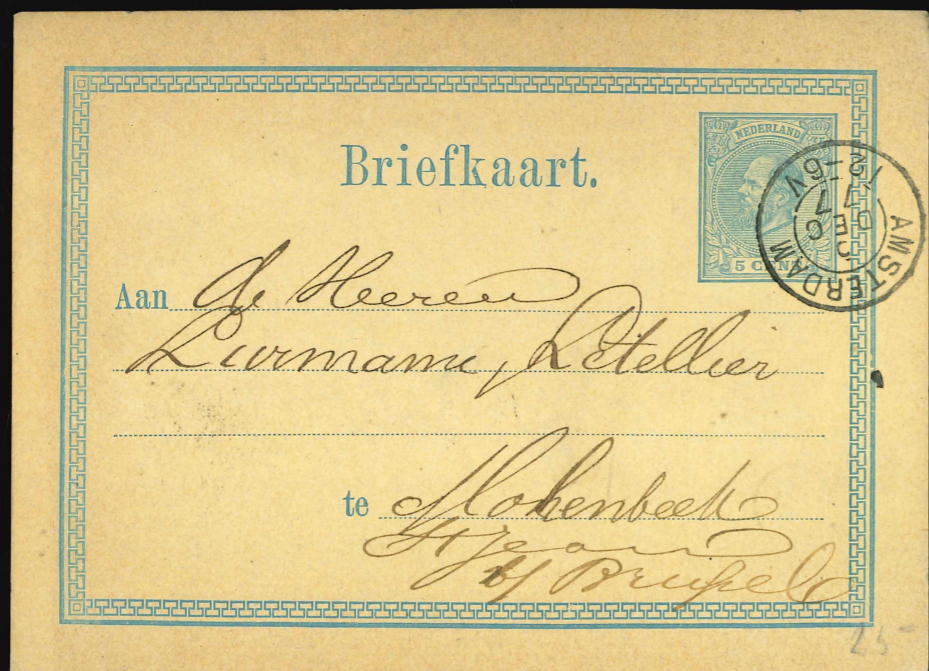 Briefkaart.
NEDERLAND
5 CENT
AMSTERDAM
3
DEC
77
12-6V
Aan de Heeren
Letellier
te Molenbeek
St Jean
b/ Brussel
25-